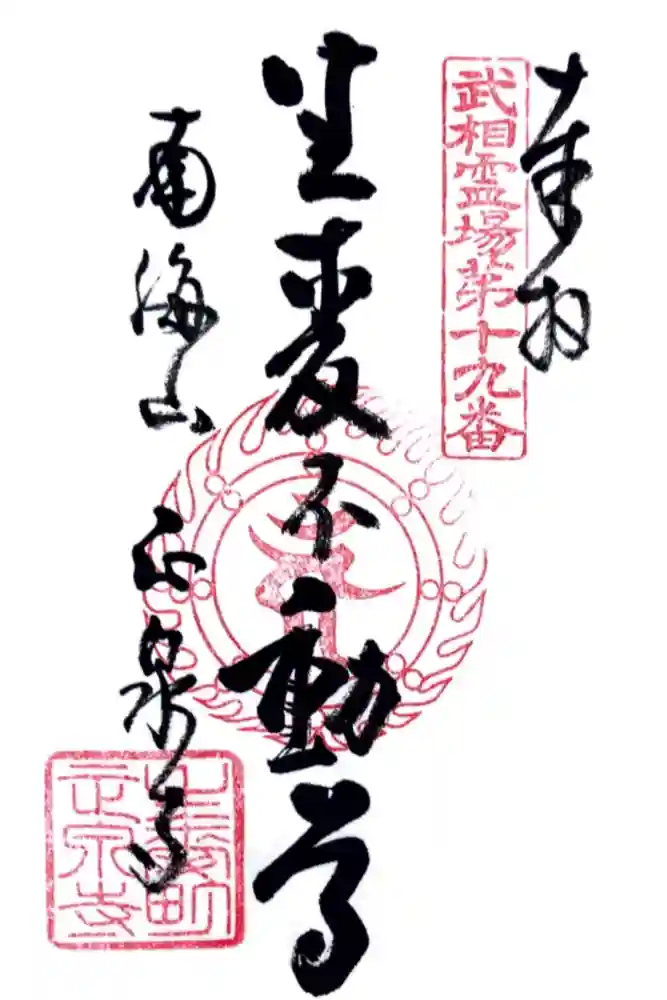 奉拝
武相霊場第十九番
生麦不動尊
南海山
正泉寺
生麦町
正泉寺